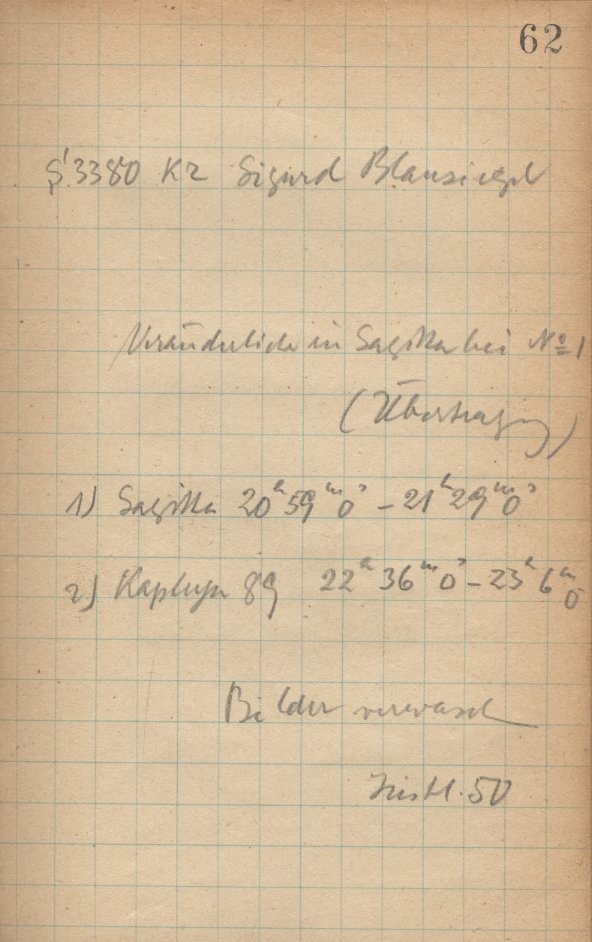 62
S 3380 Kz Sigurd Blausiegel
Veränderliche in Sagitta bei No 1
(Übertragung)
1) Sagitta 20h 59m 0s – 21h 29m 0s
2) Kapteyn 89 22h 36m 0s – 23h 6m 0
Bilder verwasch
50